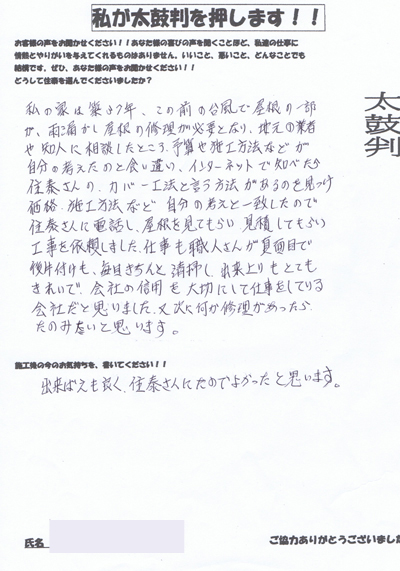 私が太鼓判を押します！！
お客様の声をお聞かせください！！あなた様の喜びの声を聞くことほど、私達の仕事に
情熱とやりがいを与えてくれるものはありません。いいこと、悪いこと、どんなことでも
結構です。ぜひ、あなた様の声をお聞かせください！！
どうして住泰を選んでくださいましたか？
太鼓判
私の家は築37年、この前の台風で屋根の一部
が、雨漏れし屋根の修理が必要となり、地元の業者
や知人に相談したところ、予算や施工方法などが
自分の考えたのと食い違い、インターネットで知べたら
住泰さんの、カバー工法と言う方法があるのを見つけ
価格、施工方法など自分の考えと一致したので
住泰さんに電話し、屋根を見てもらい見積してもらい
工事を依頼しました。仕事も職人さんが真面目で
後片付けも、毎日きちんと清掃し、出来上りもとても
きれいで、会社の信用を大切にして仕事をしている
会社だと思いました。又次に何か修理があったら
たのみたいと思います。
施工後の今のお気持ちを、書いてください！！
出来ばえも良く、住泰さんにたのでよかったと思います。
氏名
ご協力ありがとうございました